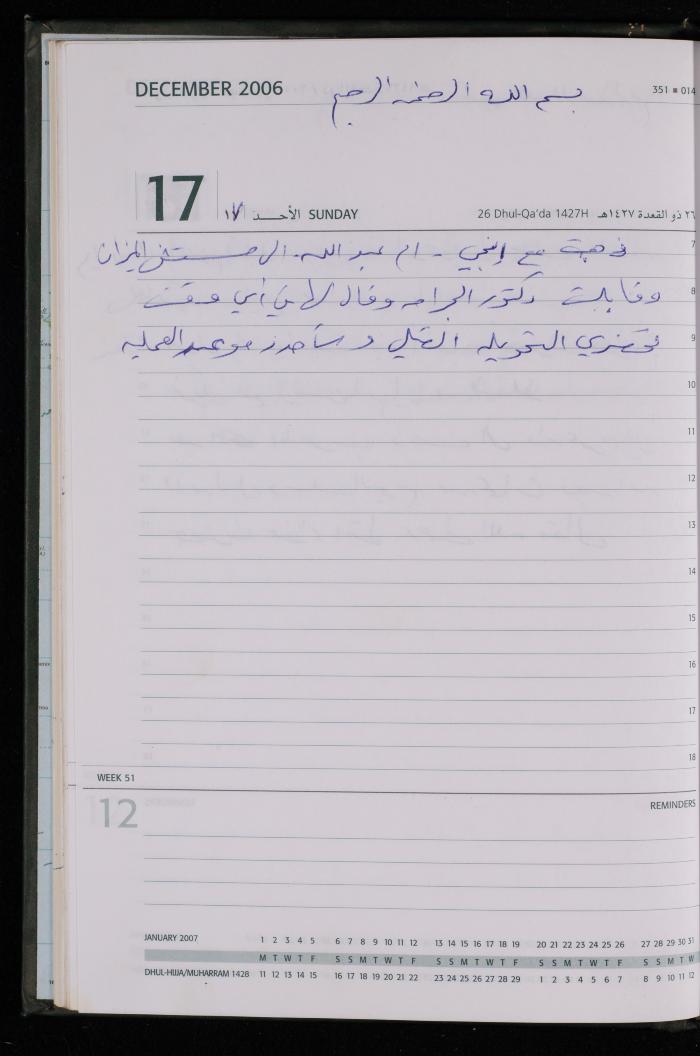 DECEMBER 2006
بسم الله الرحمن الرحيم
351 ■ 014
17
١٧ الأحـــد SUNDAY
26 Dhul-Qa'da 1427H ٢٦ ذو القعدة ١٤٢٧هـ
7
ذهبت مع إبنتي - ام عبد الله - الى مستشفى الميزان
8
وقابلت دكتور الجراحه وقال لها في أي وقت
9
تحضري التحويله اتصلي وسأحدد موعد العمليه
10
11
12
13
14
15
16
17
18
WEEK 51
12
REMINDERS
JANUARY 2007 1 2 3 4 5 6 7 8 9 10 11 12 13 14 15 16 17 18 19 20 21 22 23 24 25 26 27 28 29 30 31
M T W T F S S M T W T F S S M T W T F S S M T W T F S S M T W
DHUL-HIJJA/MUHARRAM 1428 11 12 13 14 15 16 17 18 19 20 21 22 23 24 25 26 27 28 29 1 2 3 4 5 6 7 8 9 10 11 12